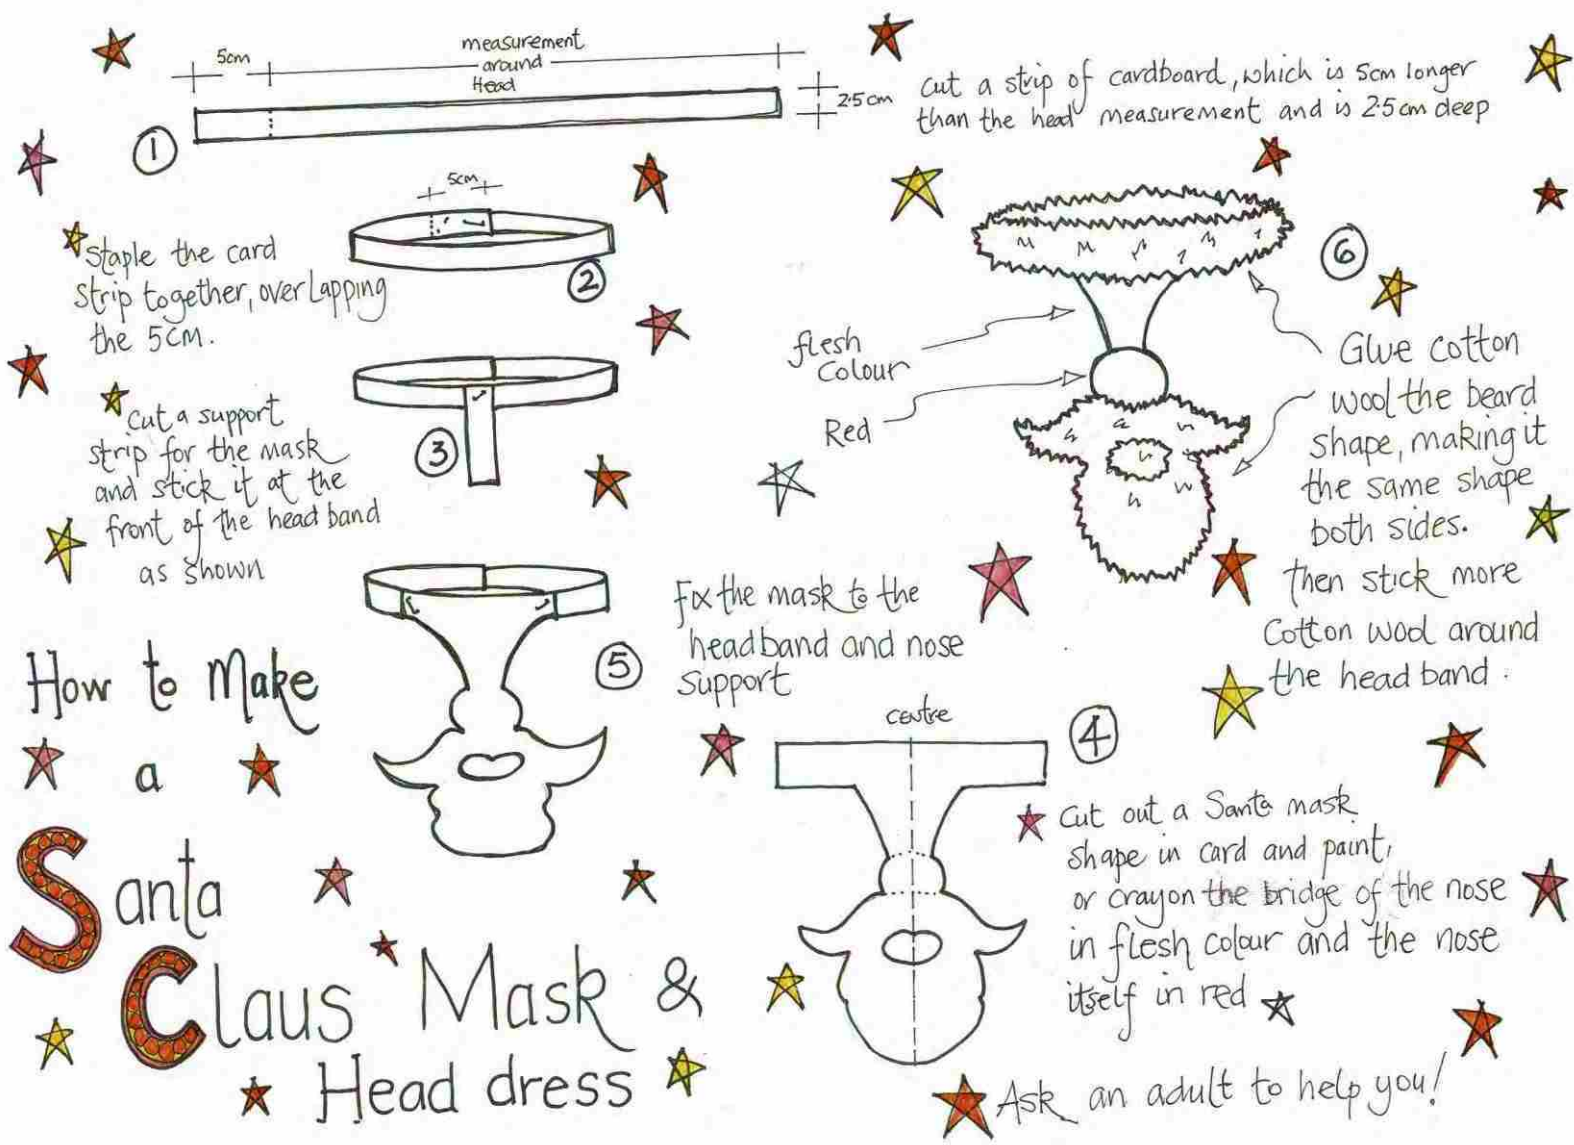 5cm
measurement
around
Head
2.5cm
1
Cut a strip of cardboard, which is 5cm longer
than the head measurement and is 2.5cm deep
5cm
2
Staple the card
strip together, overlapping
the 5cm.
3
Cut a support
strip for the mask
and stick it at the
front of the head band
as shown
6
flesh
Colour
Red
Glue cotton
wool the beard
shape, making it
the same shape
both sides.
Then stick more
Cotton wool around
the head band.
5
Fix the mask to the
headband and nose
support
centre
4
Cut out a Santa mask
shape in card and paint,
or crayon the bridge of the nose
in flesh colour and the nose
itself in red
How to Make
a
Santa
Claus Mask &
Head dress
Ask an adult to help you!